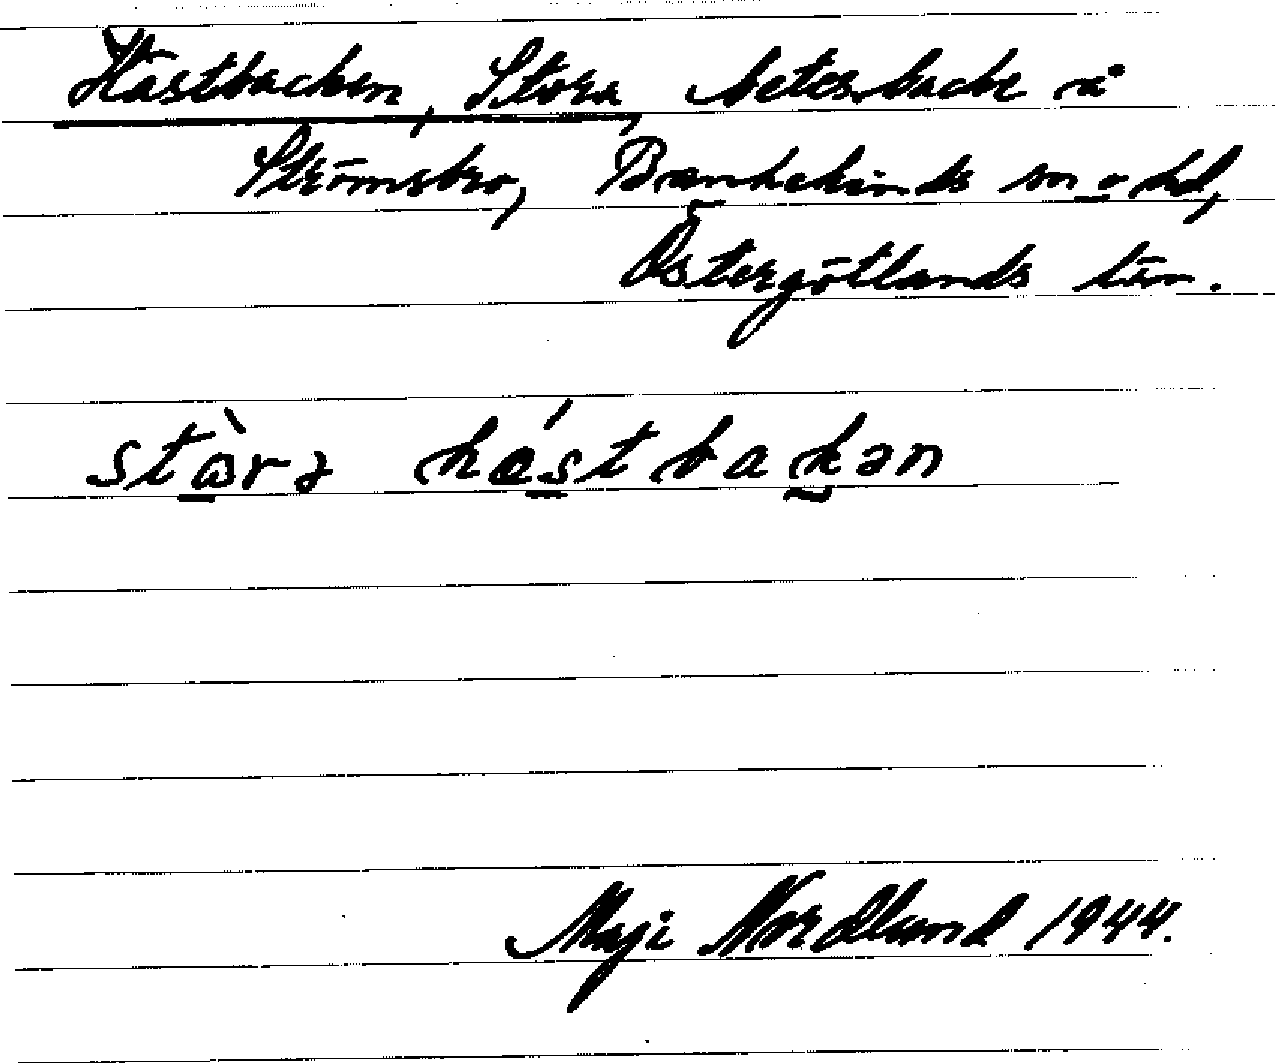 Hästbacken, Stora, betesbacke å
Strömsbro, Brunnekinds sn o hd,
Östergötlands län.
stòra hǽstbakən
Maji Nordlund 1944.